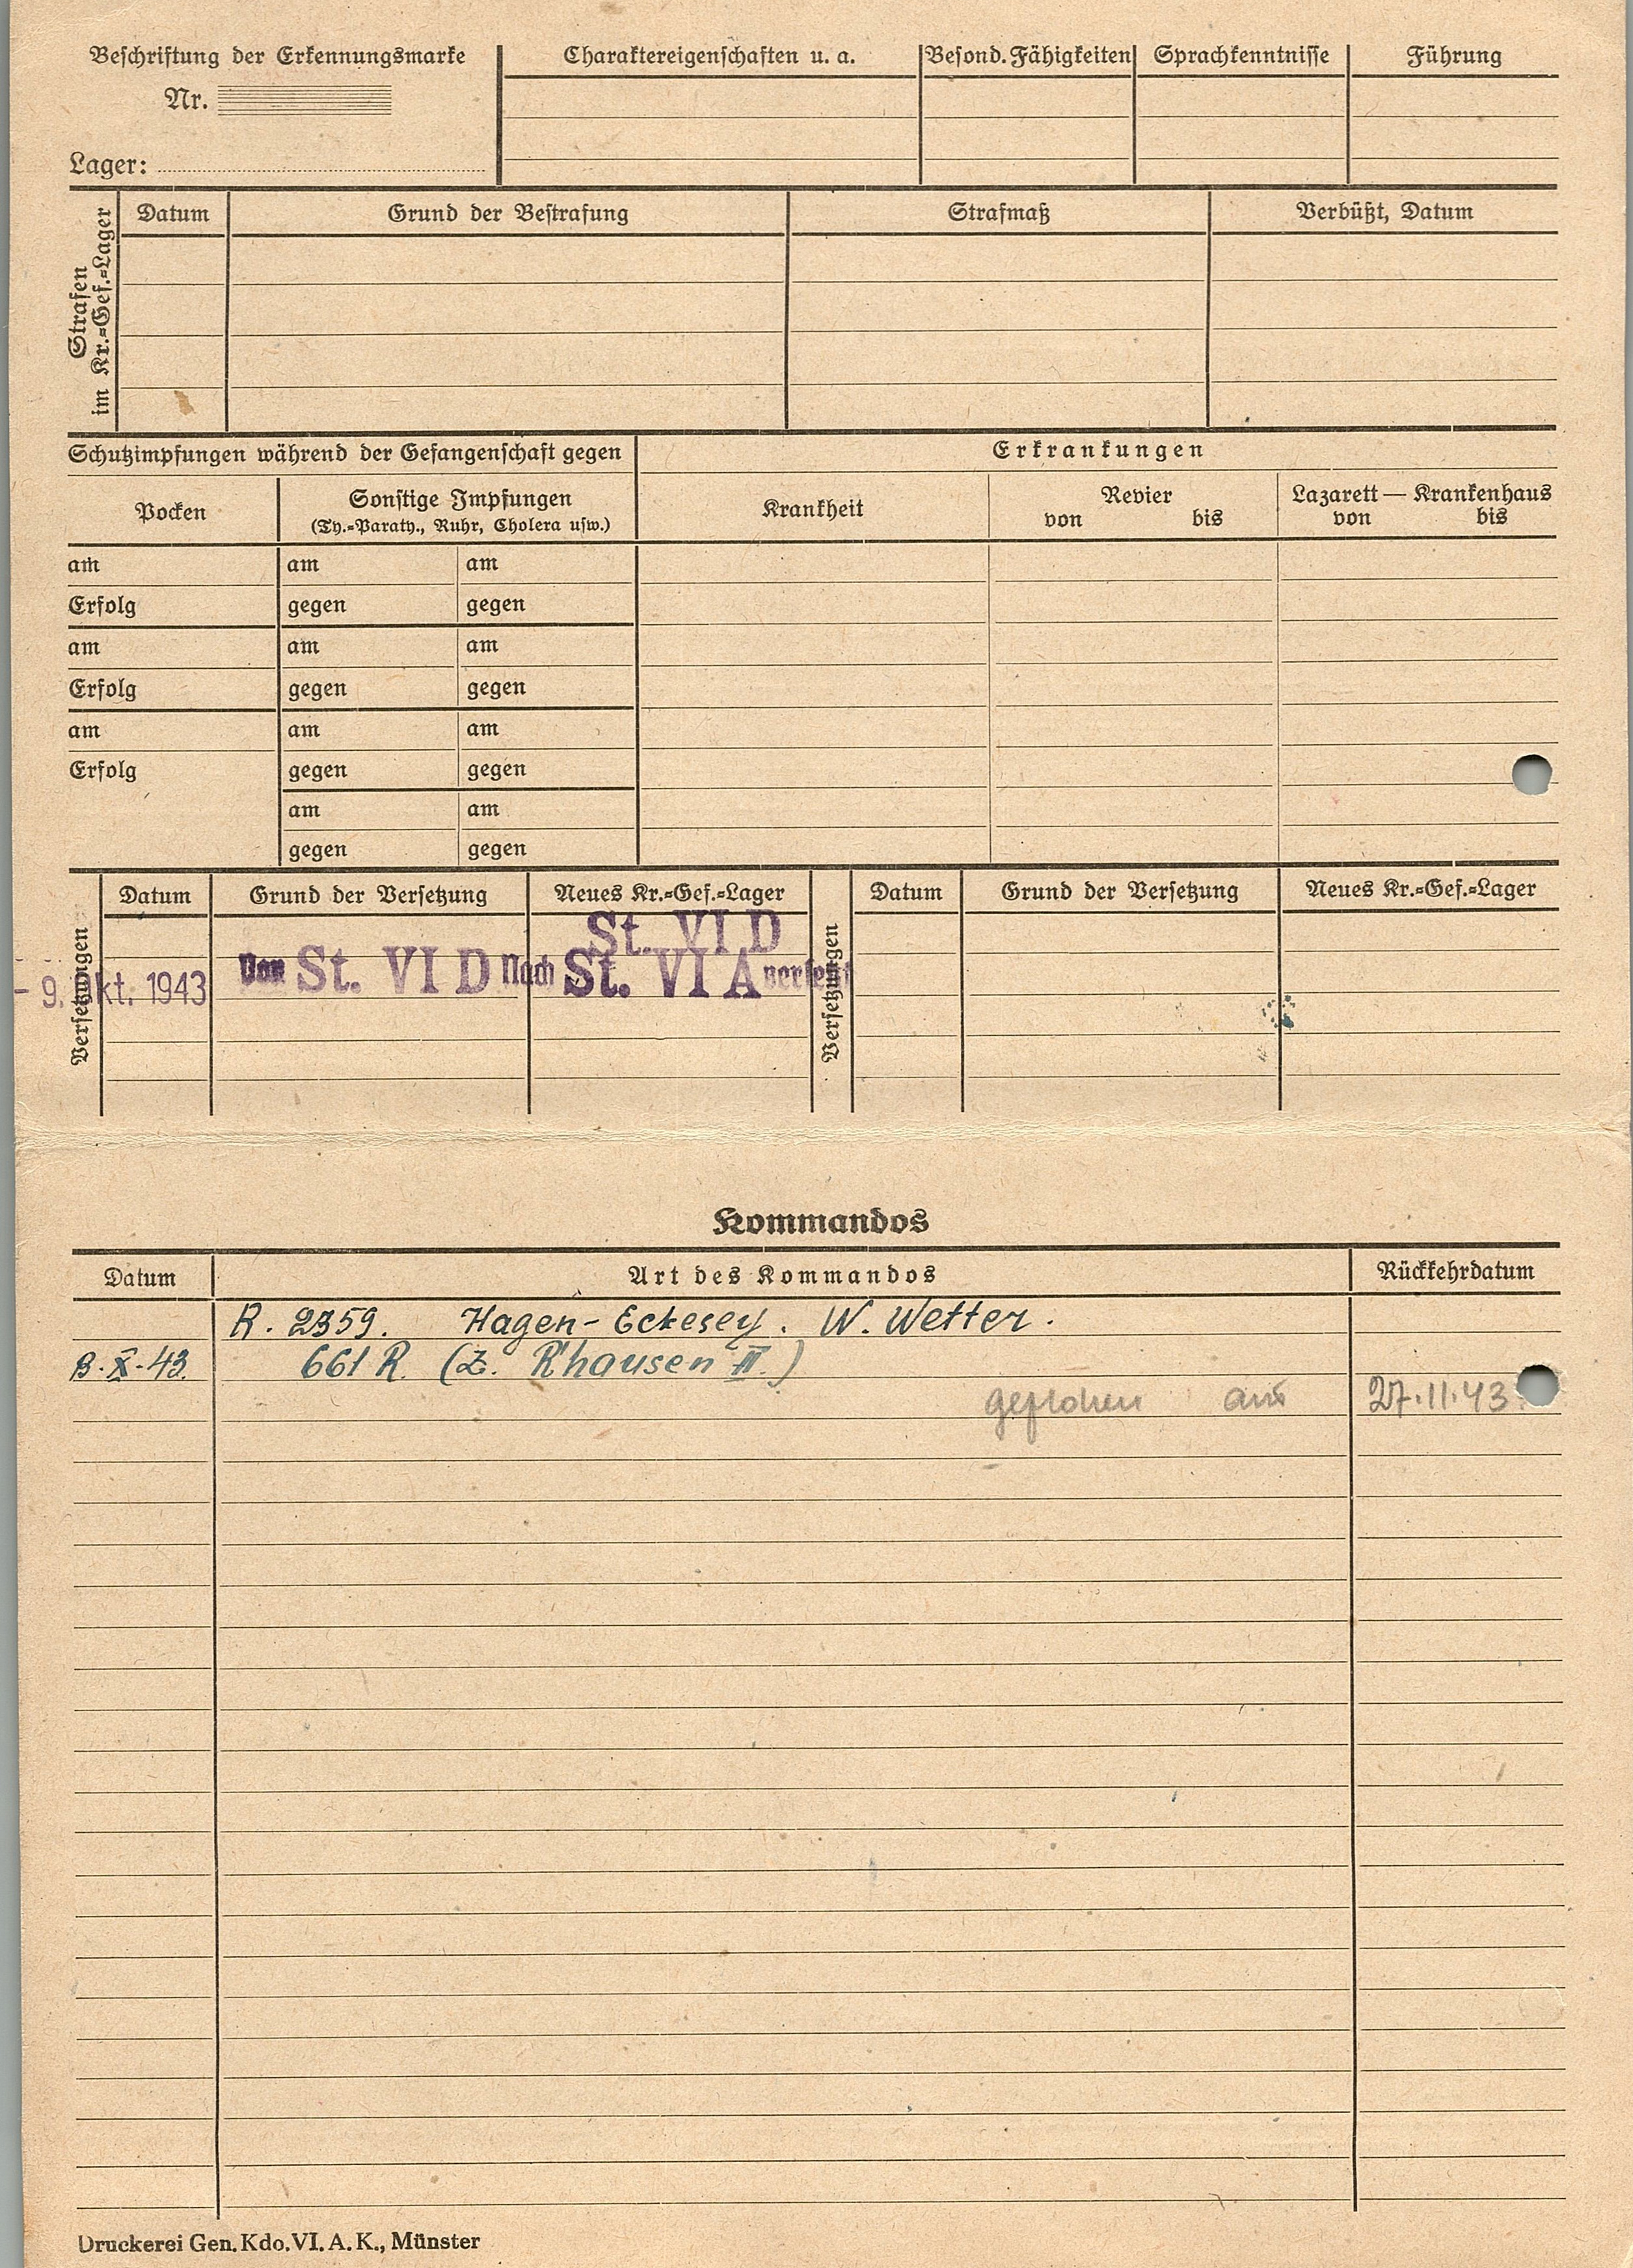 Beschriftung der Erkennungsmarke
Nr.
Lager:
Charaktereigenschaften u. a.
Besond. Fähigkeiten
Sprachkenntnisse
Führung
Strafen
im Kr.=Gef.=Lager
Datum
Grund der Bestrafung
Strafmaß
Verbüßt, Datum
Schutzimpfungen während der Gefangenschaft gegen
Erkrankungen
Pocken
Sonstige Impfungen
(Ty.=Paraty., Ruhr, Cholera usw.)
Krankheit
Revier
von bis
Lazarett — Krankenhaus
von bis
am am am
Erfolg gegen gegen
am am am
Erfolg gegen gegen
am am am
Erfolg gegen gegen
am am
gegen gegen
Versetzungen
Datum
Grund der Versetzung
Neues Kr.=Gef.=Lager
Versetzungen
Datum
Grund der Versetzung
Neues Kr.=Gef.=Lager
St. VI D
- 9. Okt. 1943 Von St. VI D Nach St. VI A versetzt
Kommandos
Datum Art des Kommandos Rückkehrdatum
R. 2359. Hagen-Eckesey. W. Wetter.
661 R. (Z. R'hausen II.)
geflohen am 27.11.43.
Druckerei Gen. Kdo. VI. A. K., Münster